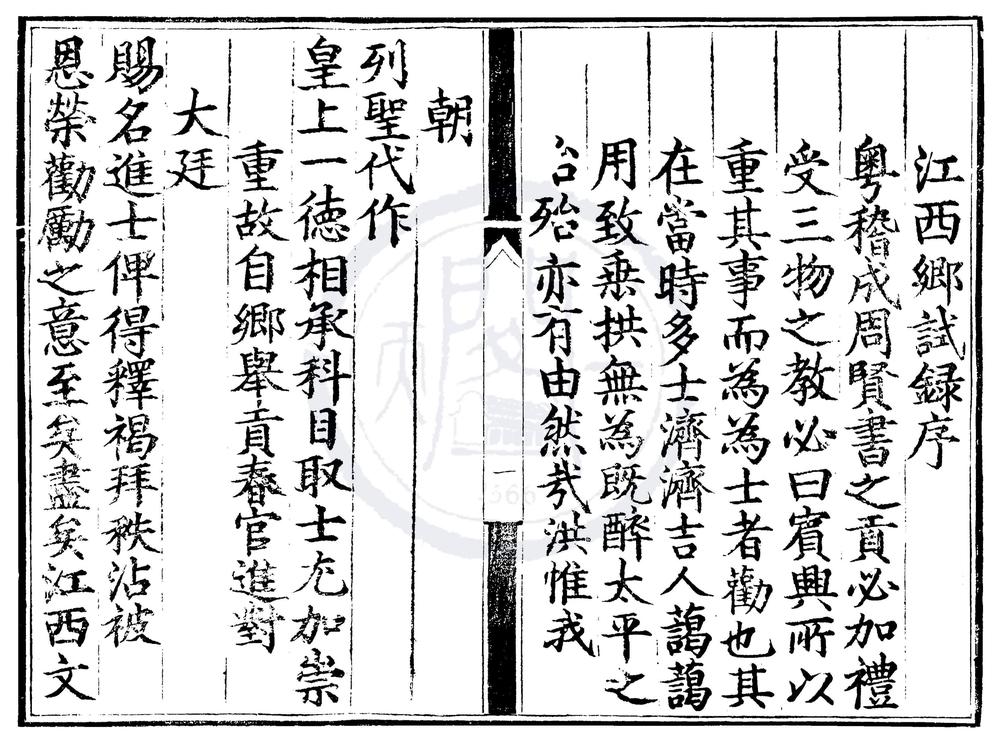 江西鄉試録序
粤稽成周賢書之貢必加禮
受三物之教必曰賓興所以
重其事而為為士者勸也其
在當時多士濟濟吉人藹藹
用致垂拱無為既醉太平之
治殆亦有由然哉洪惟我
朝
列聖代作
皇上一德相承科目取士尤加崇
重故自鄉舉貢春官進對
大廷
賜名進士俾得釋褐拜秩沾被
恩榮勸勵之意至矣盡矣江西文
一